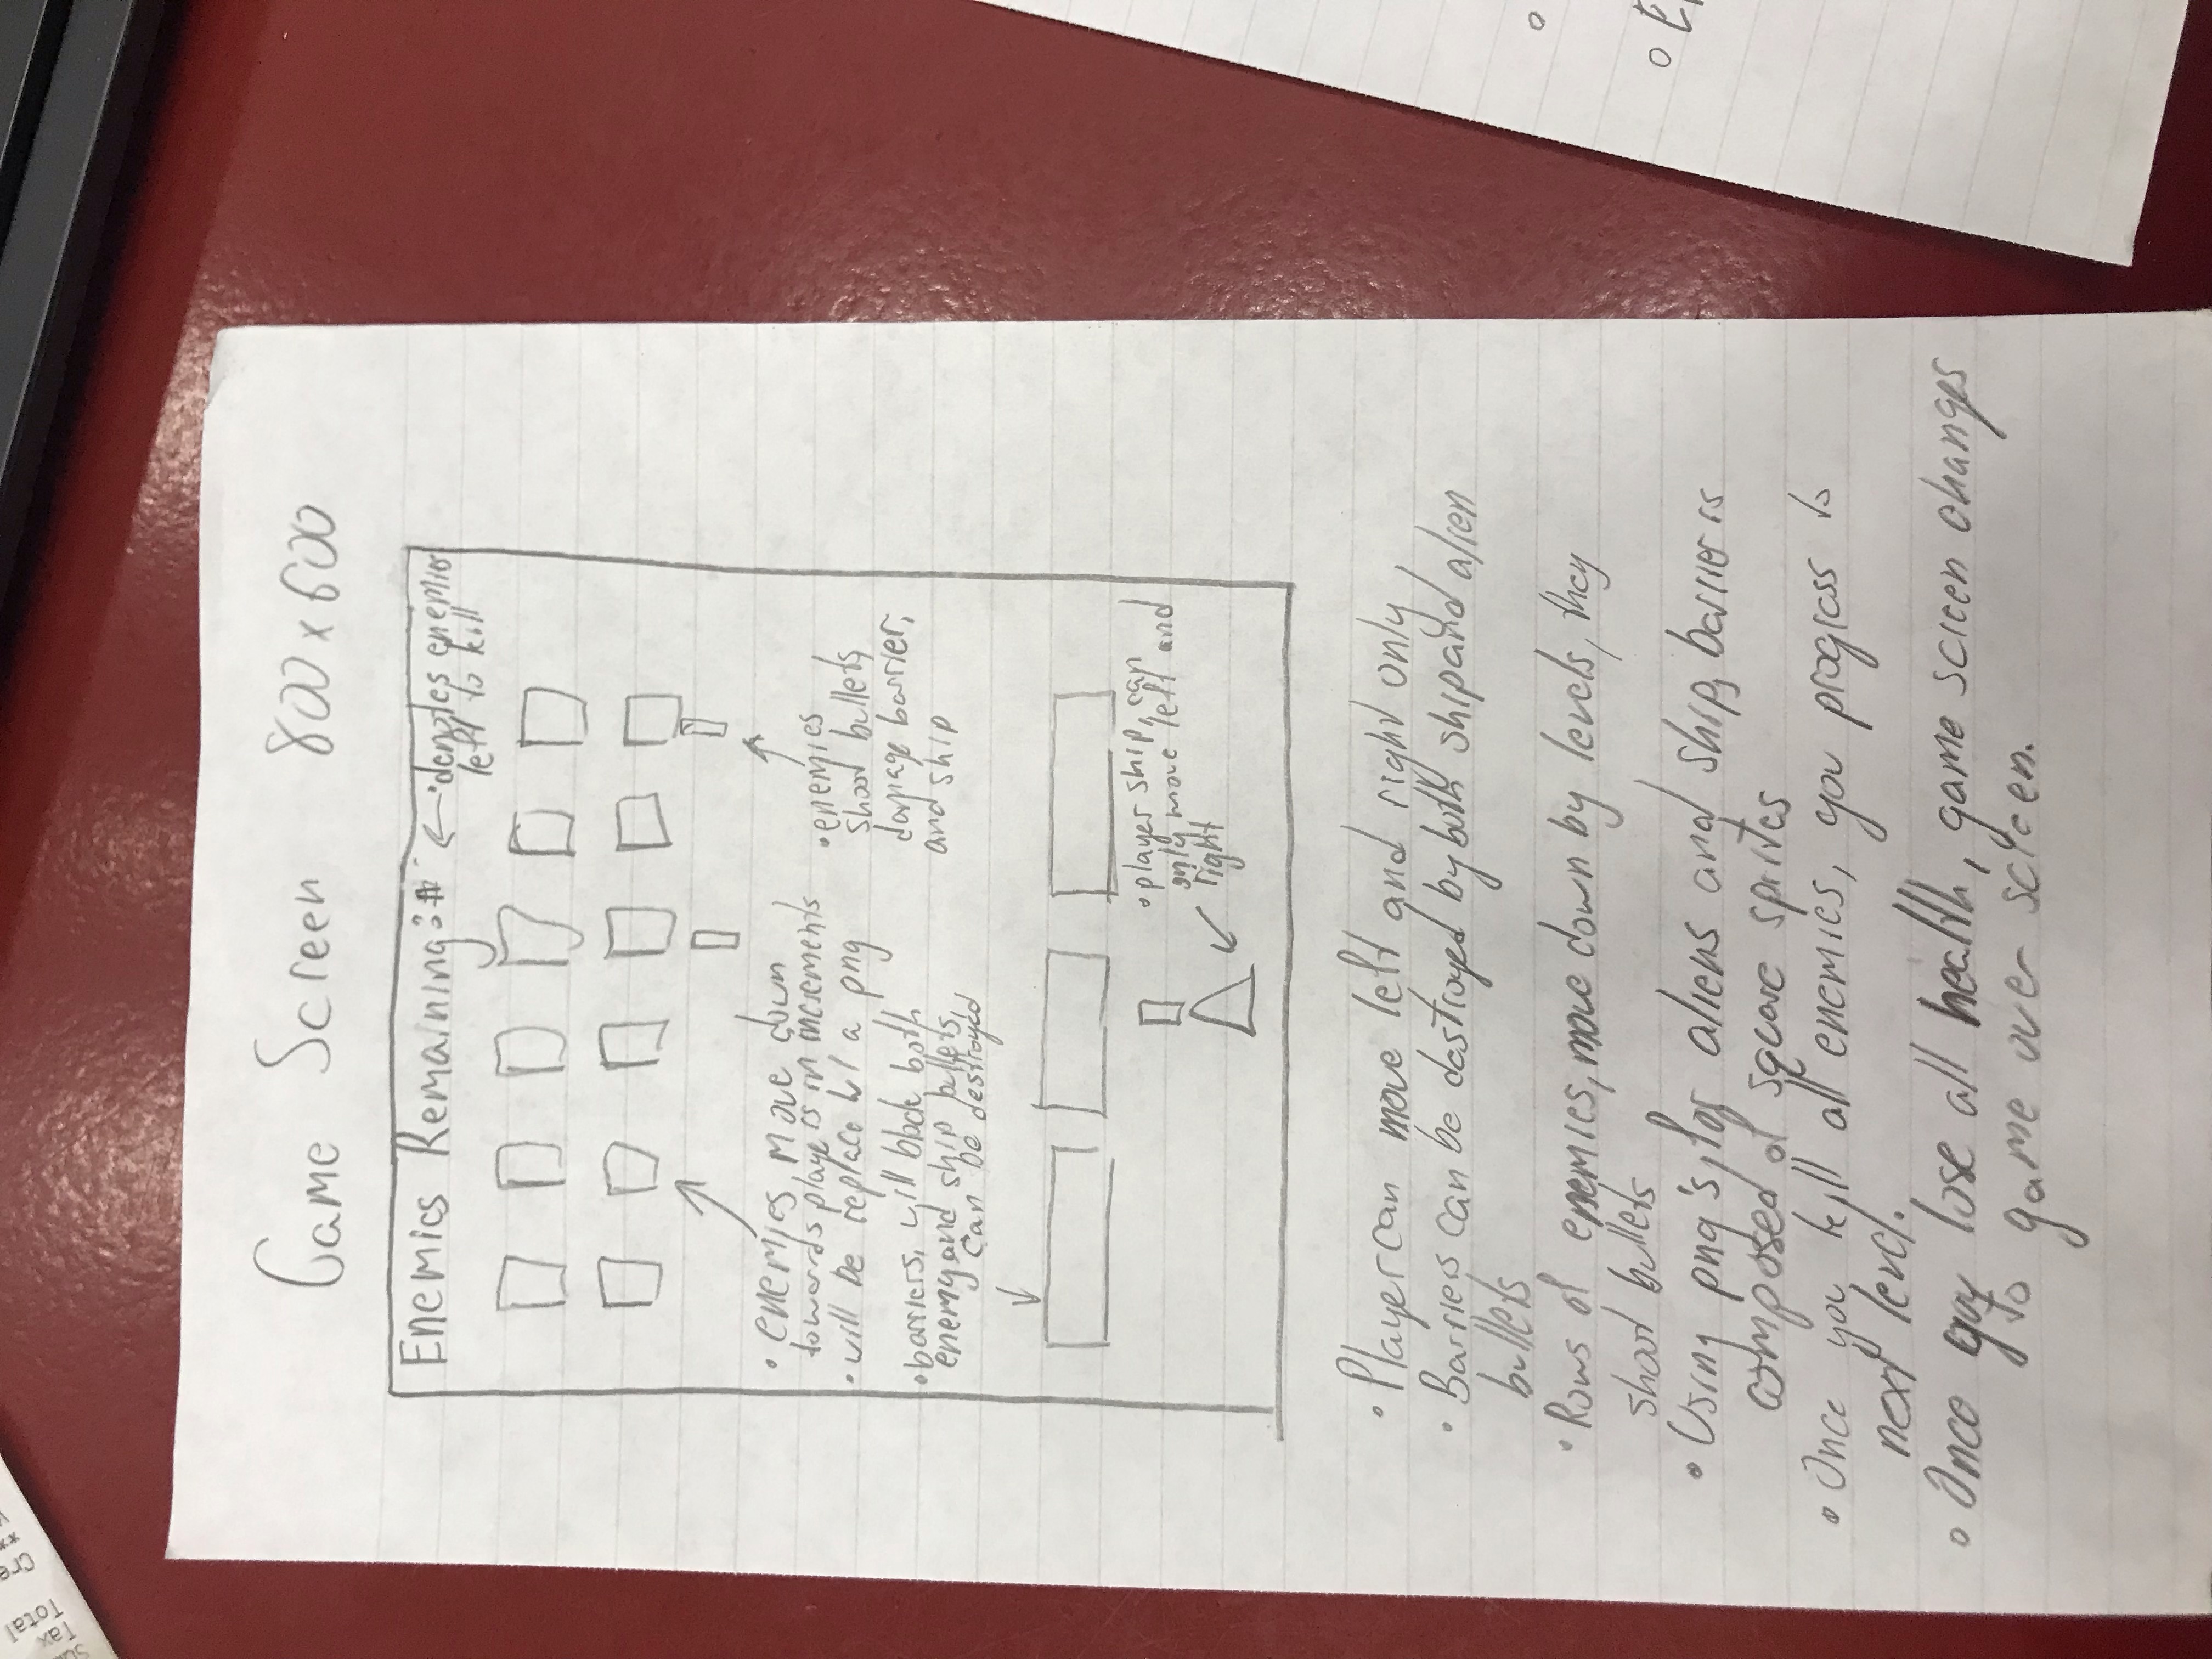 Total
Tax
Game Screen 800 x 600
Enemies Remaining: #
← • denotes enemies
left to kill
• enemies, move down
towards player is in increments
• will be replace w/ a png
• enemies
shoot bullets,
damage barrier,
and ship
• barriers, will block both
enemy and ship bullets,
can be destroyed
• player ship, can
only move left and
right
• Player can move left and right only,
• Barriers can be destroyed by both ship and alien
bullets
• Rows of enemies, move down by levels, they
shoot bullets
• Using png's, for aliens and ship, barrier is
composed of square sprites
• Once you kill all enemies, you progress to
next level.
• Once you lose all health, game screen changes
to game over screen.